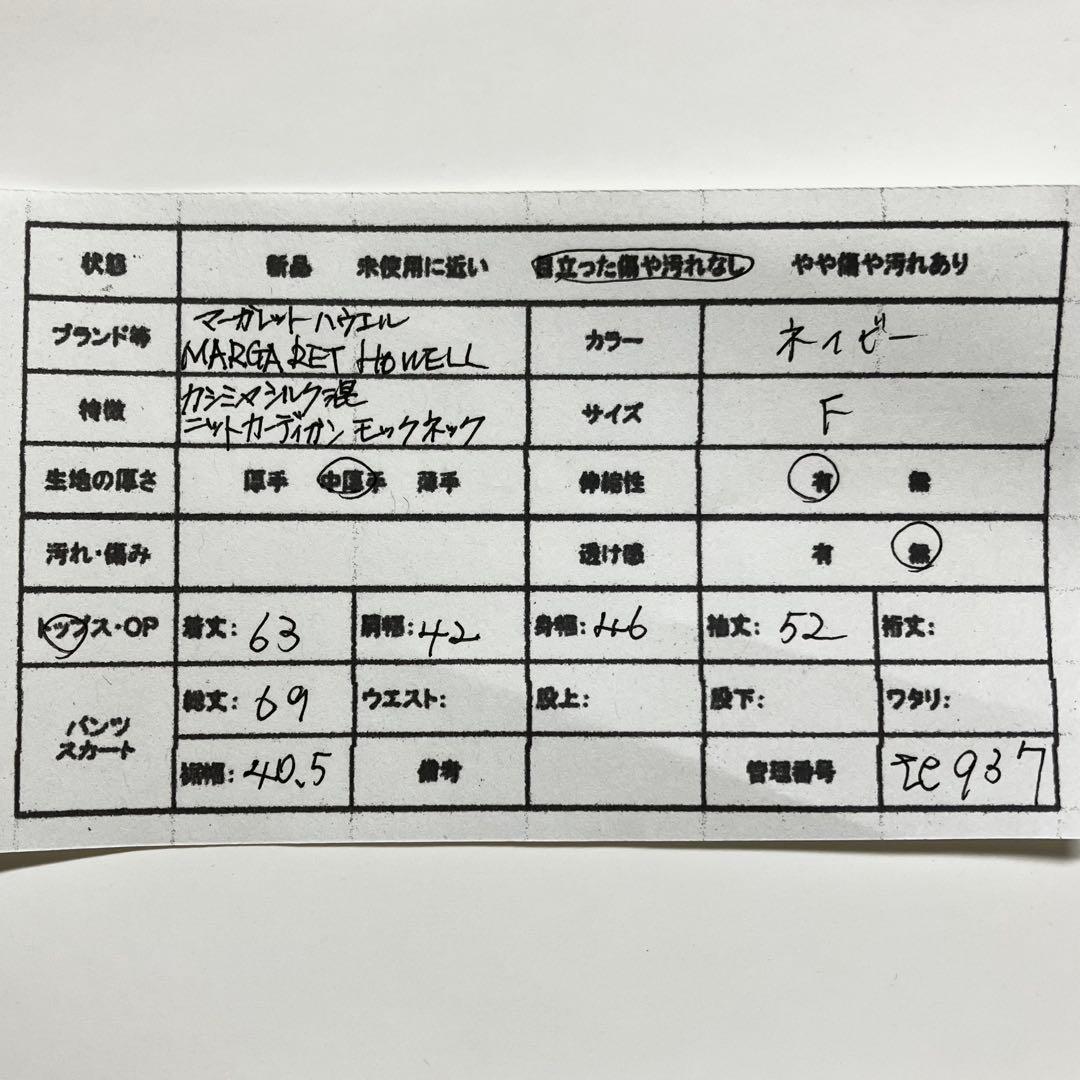 状態 新品 未使用に近い 目立った傷や汚れなし やや傷や汚れあり
ブランド等 マーガレットハウエル MARGARET HOWELL カラー ネイビー
特徴 カシミヤシルク混 ニットカーディガン モックネック サイズ F
生地の厚さ 厚手 中厚手 薄手 伸縮性 有 無
汚れ・傷み 透け感 有 無
トップス・OP 着丈: 63 肩幅: 42 身幅: 46 袖丈: 52 裄丈:
パンツ スカート 総丈: 69 ウエスト: 股上: 股下: ワタリ:
裾幅: 40.5 備考 管理番号 937